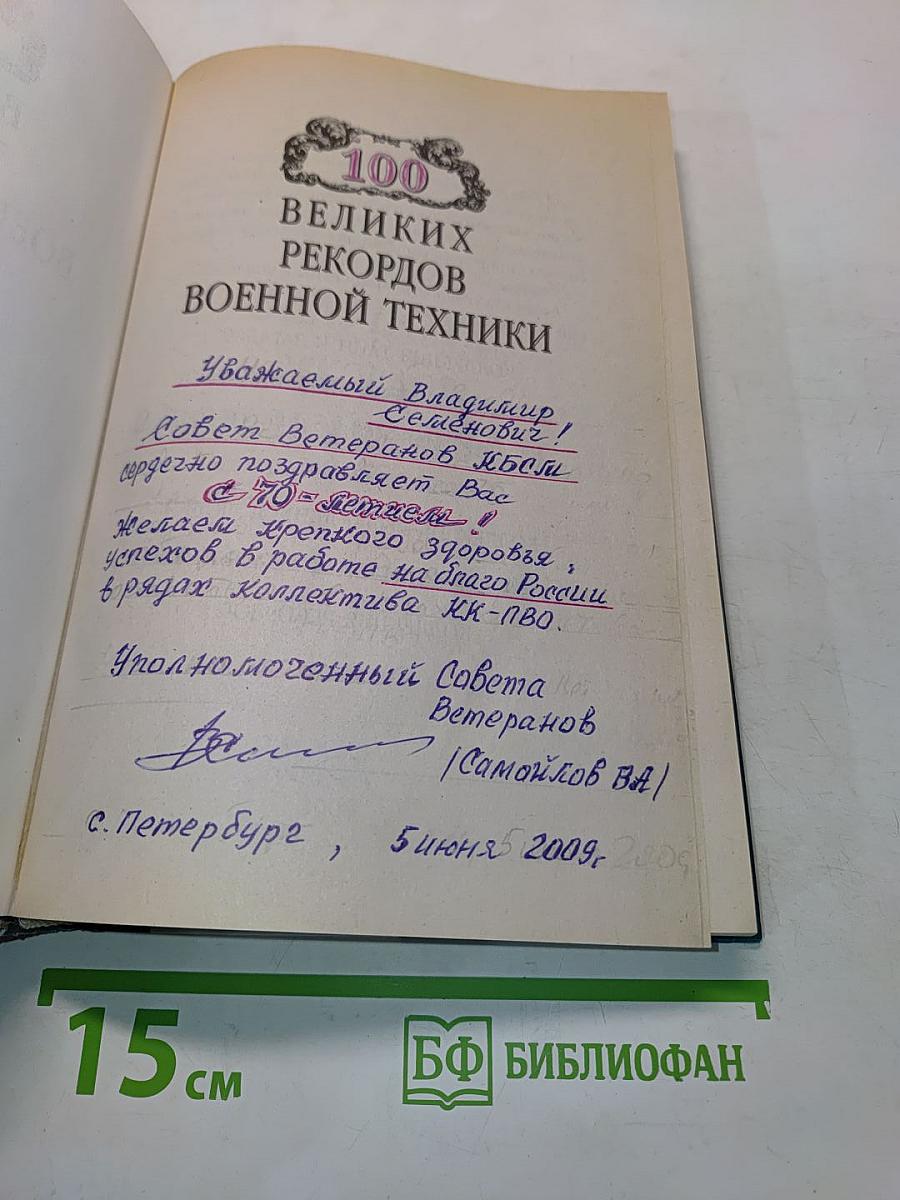 100
ВЕЛИКИХ
РЕКОРДОВ
ВОЕННОЙ ТЕХНИКИ
Уважаемый Владимир
Семёнович!
Совет Ветеранов КБСМ
сердечно поздравляет Вас
с 70-летием!
Желаем крепкого здоровья,
успехов в работе на благо России
в рядах коллектива КК-ПВО.
Уполномоченный Совета
Ветеранов
/Самойлов ВА/
С. Петербург, 5 июня 2009г
15 см
БФ БИБЛИОФАН